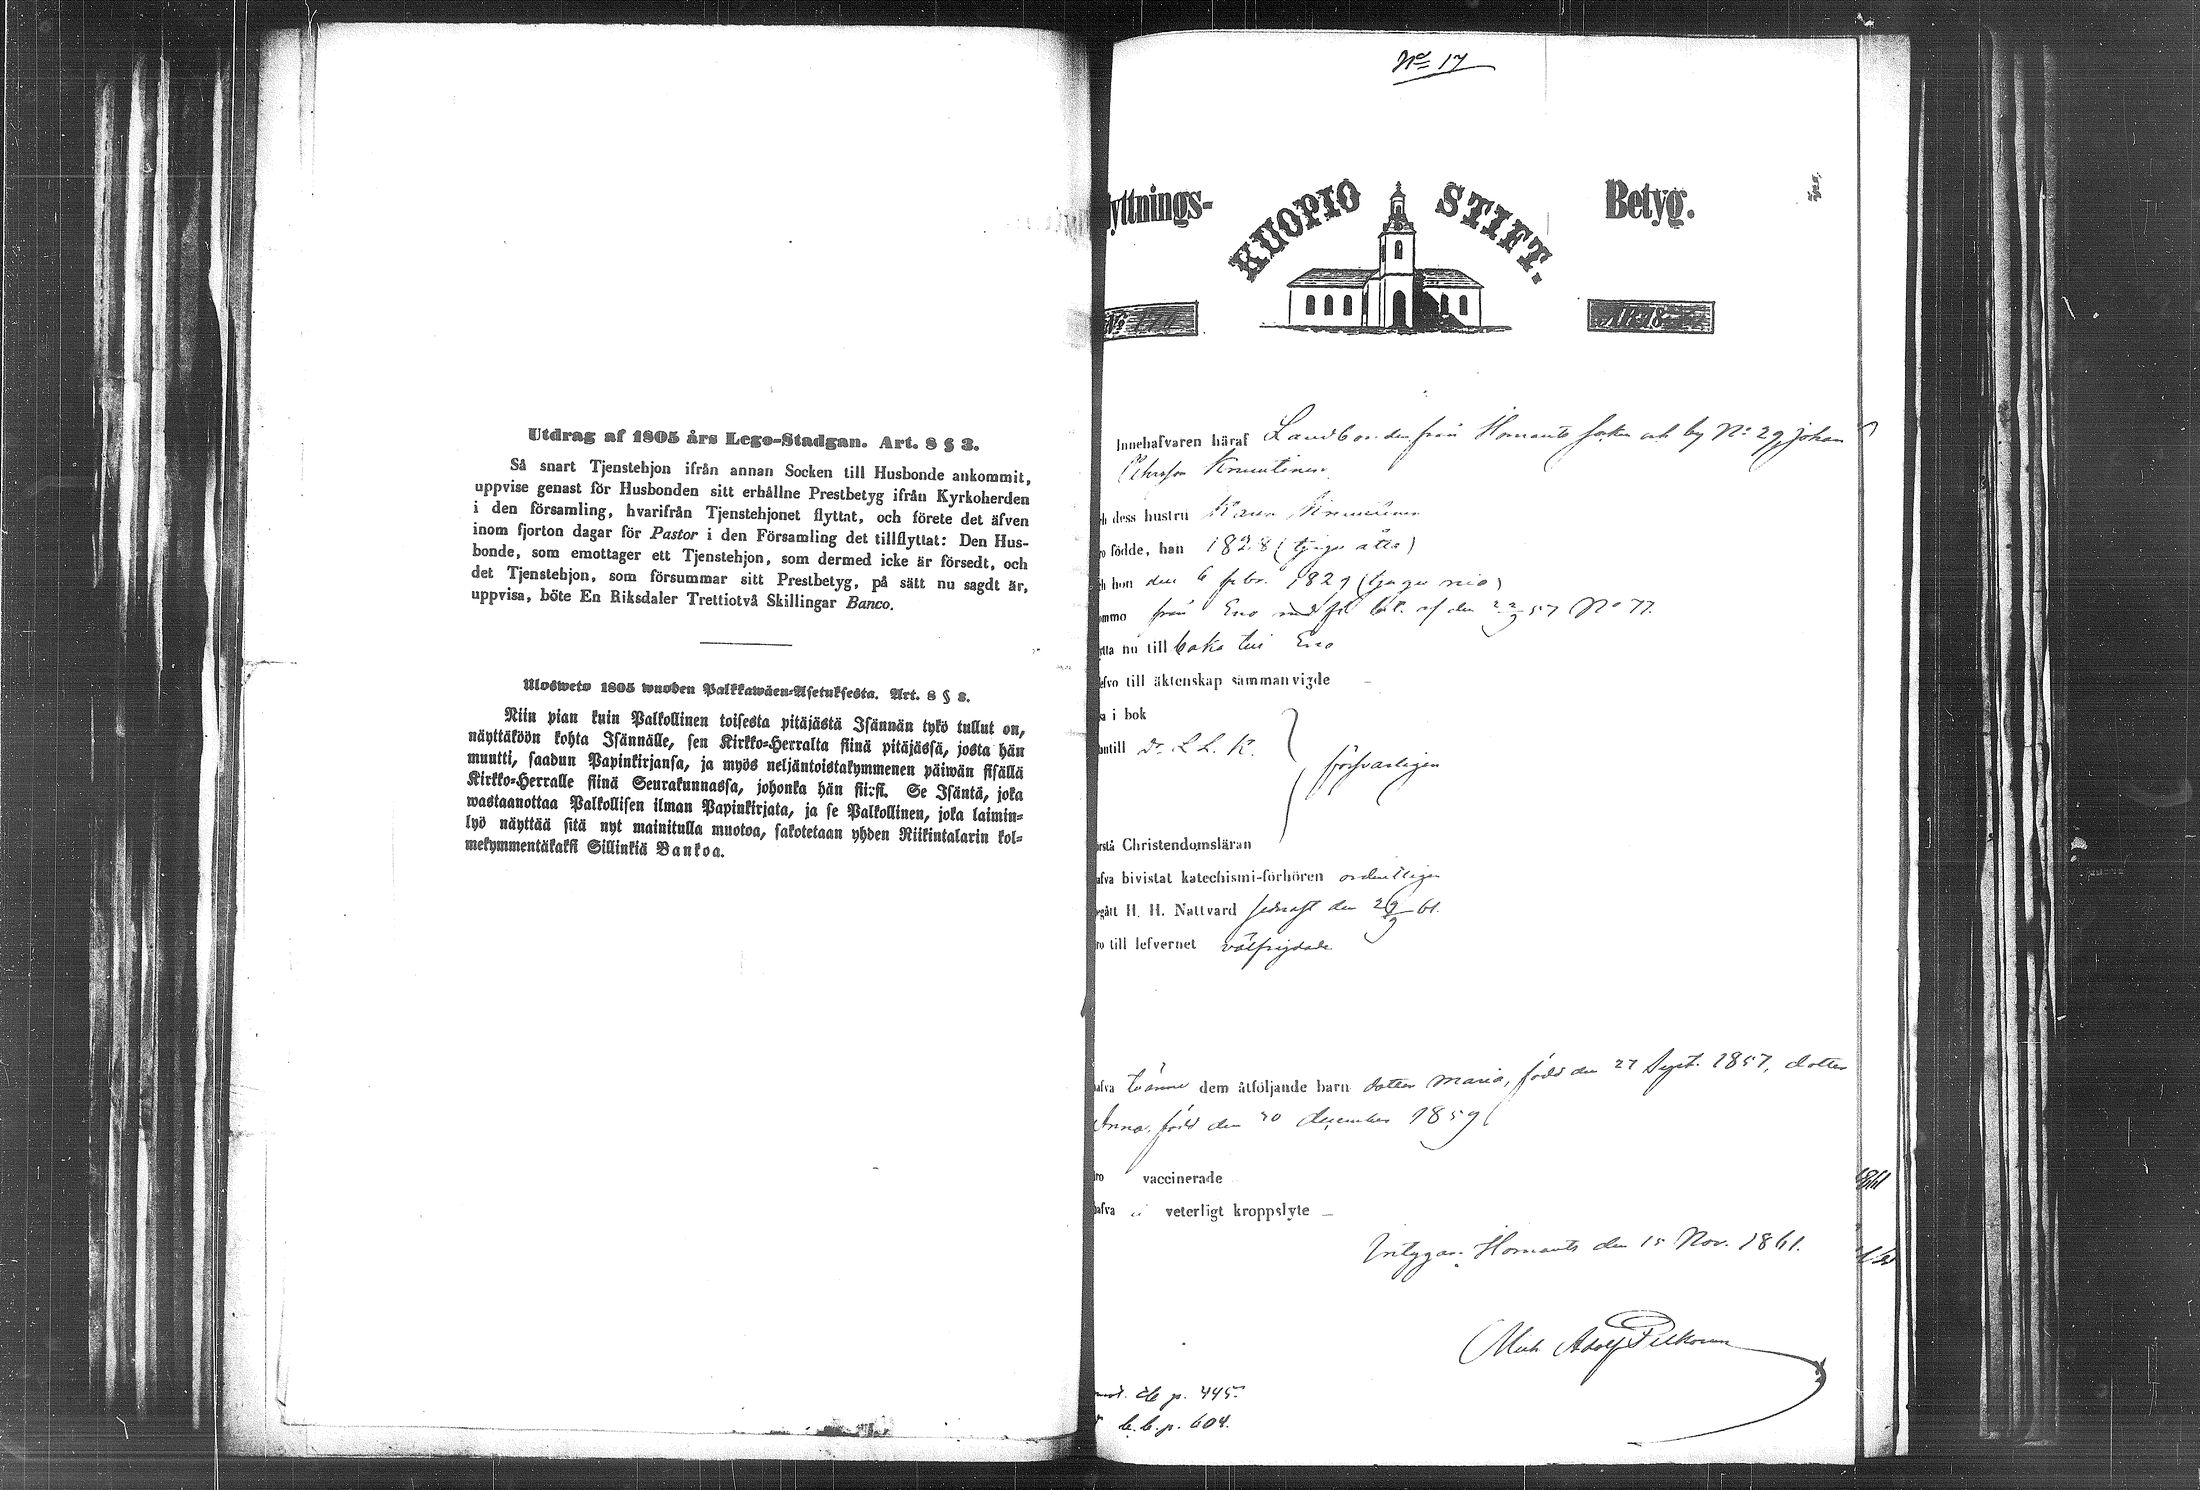 Utdrag af 1805 års Lego-Stadgan. Art. 8 § 3.
Så snart Tjenstehjon ifrån annan Socken till Husbonde ankommit,
uppvise genast för Husbonden sitt erhållne Prestbetyg ifrån Kyrkoherden
i den församling, hvarifrån Tjenstehjonet flyttat, och förete det äfven
inom fjorton dagar för Pastor i den Församling det tillflyttat: Den Hus-
bonde, som emottager ett Tjenstehjon, som dermed icke är försedt, och
det Tjenstehjon, som försummar sitt Prestbetyg, på sätt nu sagdt är,
uppvisa, böte En Riksdaler Trettiotvå Skillingar Banco.
Ulosweto 1805 wuoden Palkkawäen-Asetuksesta. Art. 8 § 3.
Niin pian kuin Palkollinen toisesta pitäjästä Isännän tykö tullut on,
näyttäköön kohta Isännälle, sen Kirkko-Herralta siinä pitäjässä, josta hän
muutti, saadun Papinkirjansa, ja myös neljäntoistakymmenen päiwän sisällä
Kirkko-Herralle siinä Seurakunnassa, johonka hän siirsi. Se Isäntä, joka
wastaanottaa Palkollisen ilman Papinkirjata, ja se Palkollinen, joka laimin-
lyö näyttää sitä nyt mainitulla muotoa, sakotetaan yhden Riikintalarin kol-
mekymmentäkaksi Sillinkiä Bankoa.
No 17
yttnings- KUOPIO STIFT. Betyg.
No AR 18
Innehafvaren häraf Landbonden från Ilomants socken och by No 29, Johan
Petersson Knuutinen
dess hustru Karin Knuutinen
födde, han 1828 (tjugu åtta)
hon den 6 febr. 1829 (tjugu nio)
från Eno med fl. bet. af den 22/9 57 No 77.
nu till baka till Eno
till äktenskap sammanvigde –
i bok
Dr. L. L. K. försvarligen
Christendomsläran
bivistat katechismi-förhören ordentligen
H. H. Nattvard sednast den 29/9 61.
till lefvernet välfrejdade
tvänne dem åtföljande barn dotter Maria, född den 27 Sept. 1857, dotter
Anna, född den 20 december 1859
vaccinerade
ei veterligt kroppslyte –
Intygar. Ilomants den 15 Nov. 1861.
Mich Adolf Pelkonen
p. 445.
b. b. p. 604.
1861